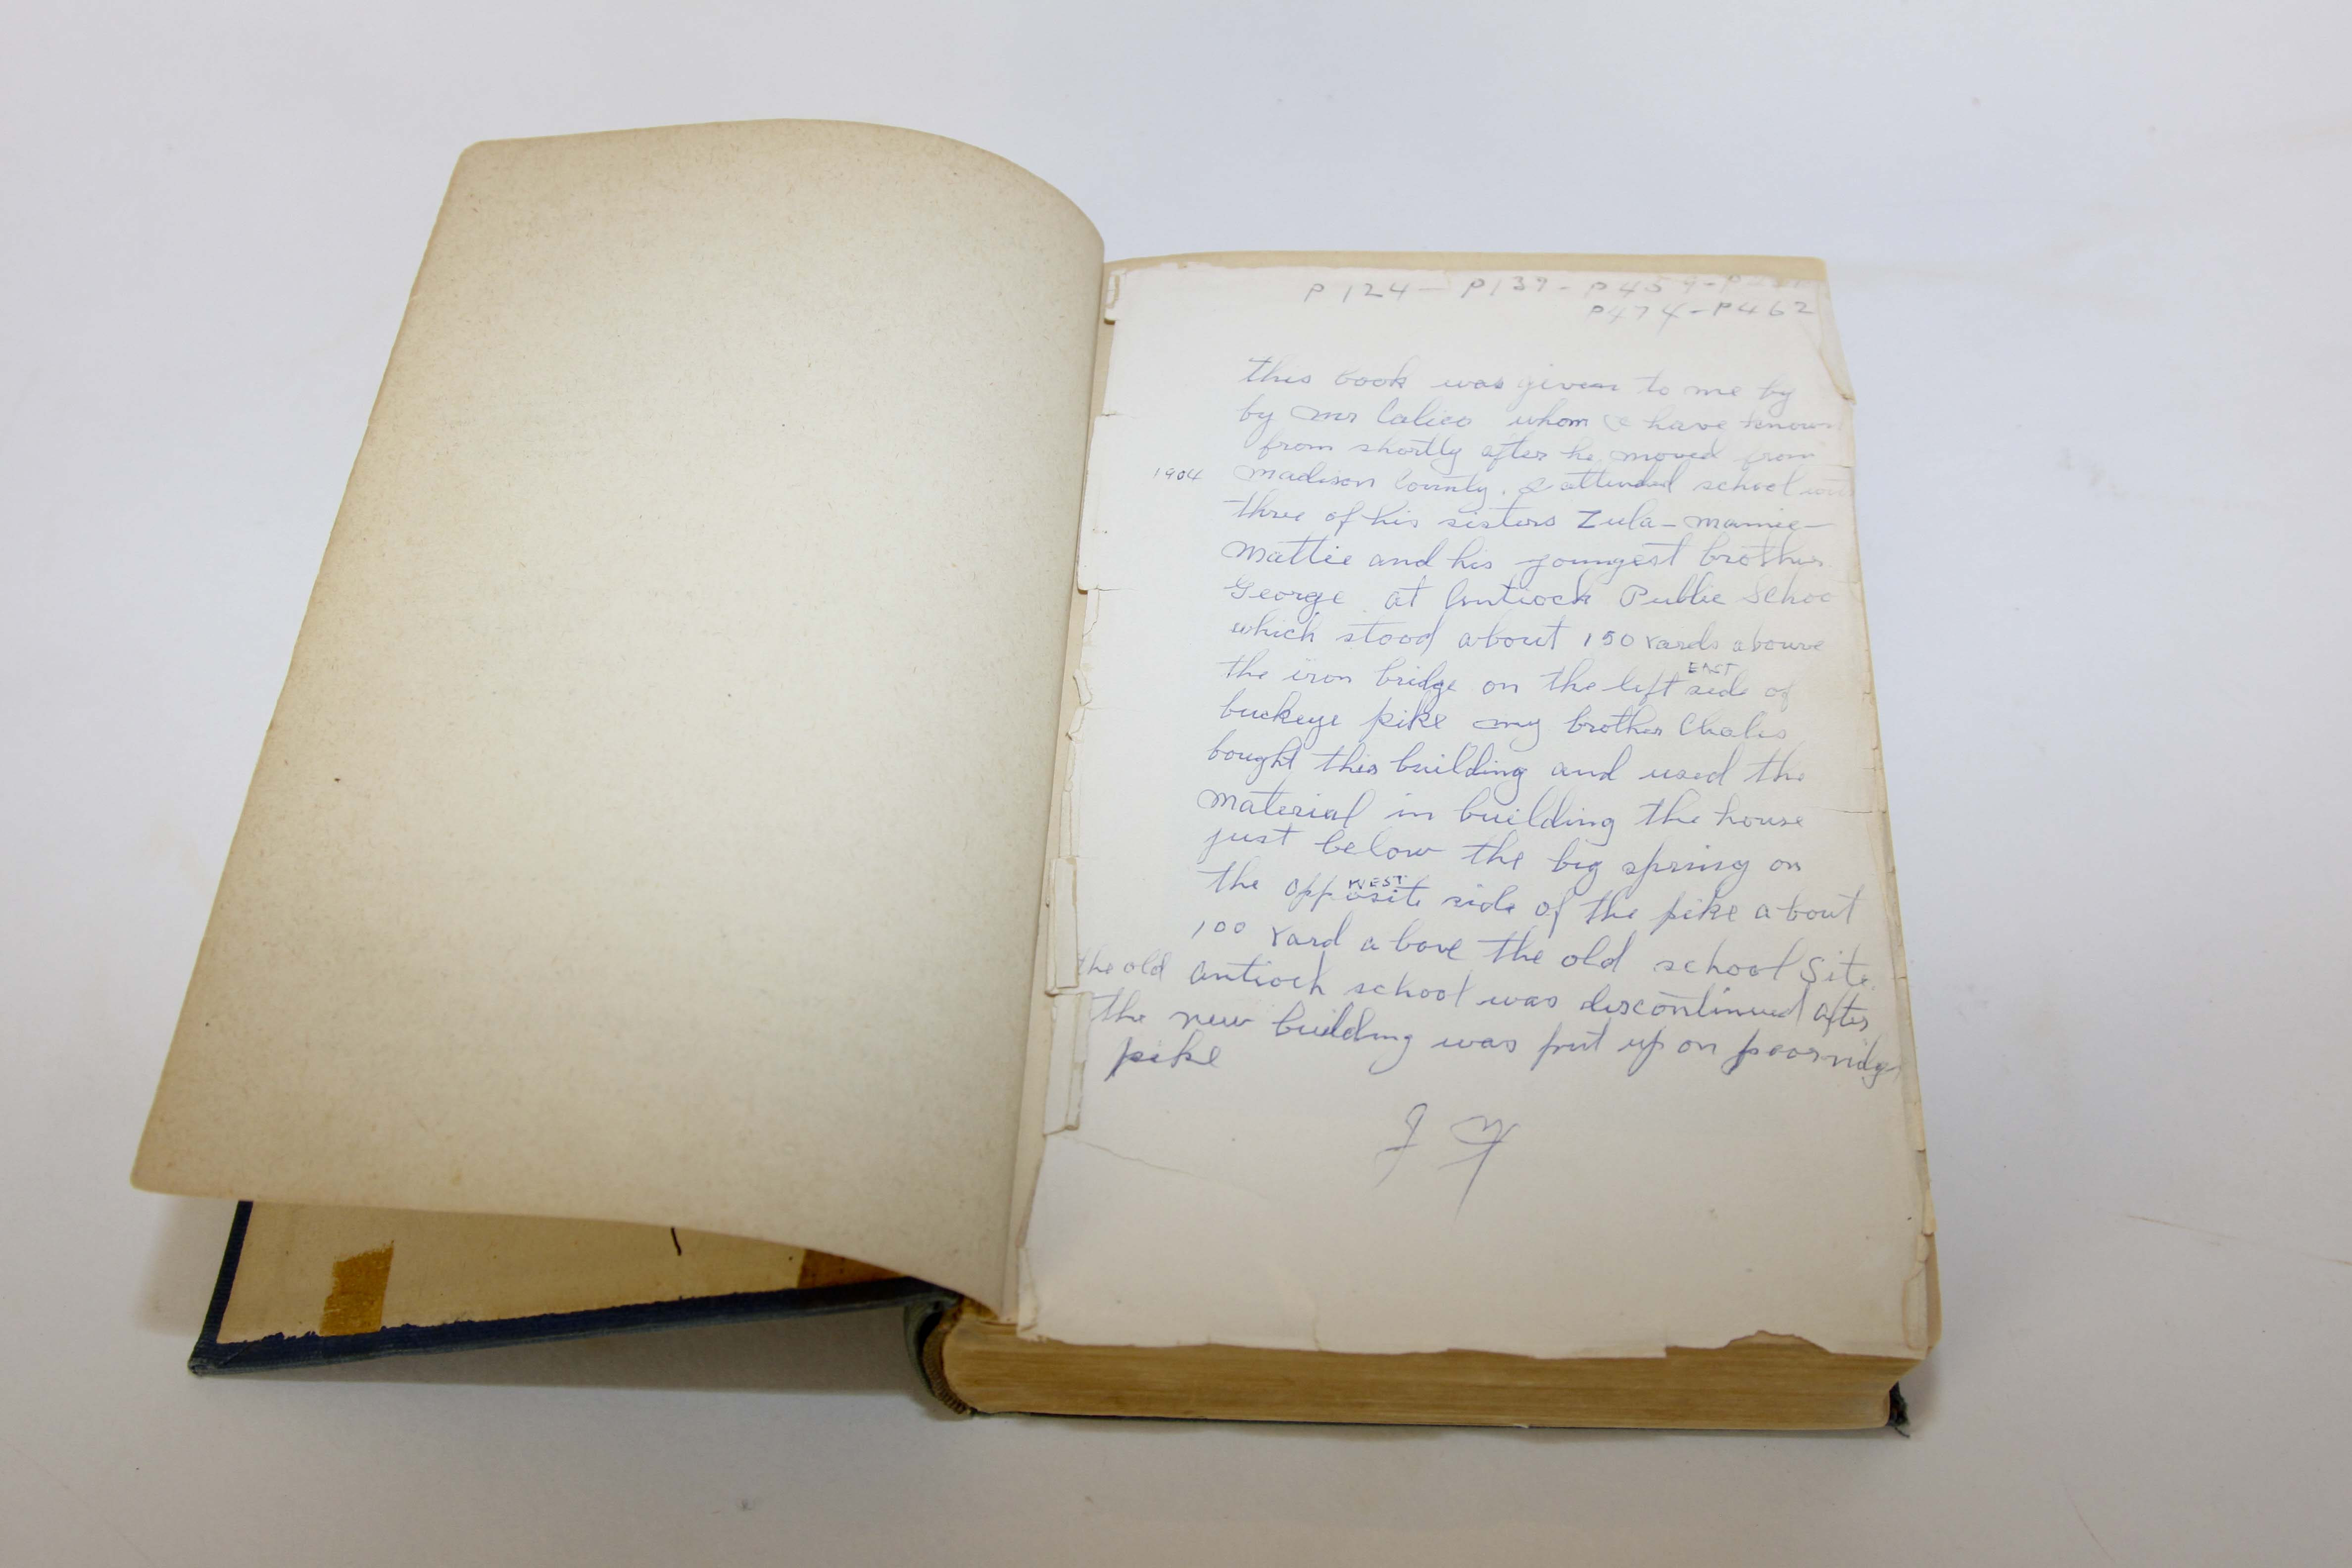 P124 - P139 - P459 - P
P474 - P462
this book was given to me by
by mr Calico whom I have known
from shortly after he moved from
1904 madison County. I attended school
three of his sisters Zula - mamie -
mattie and his youngest brother
George at Antioch Public Schoo
which stood about 150 Yards abouve
the iron bridge on the left EAST side of
buckeye pike my brother Chales
bought this building and used the
material in building the house
just below the big spring on
the opposite WEST side of the pike about
100 Yard above the old school Site.
the old antioch school was discontinued after
the new building was put up on poorridge
pike